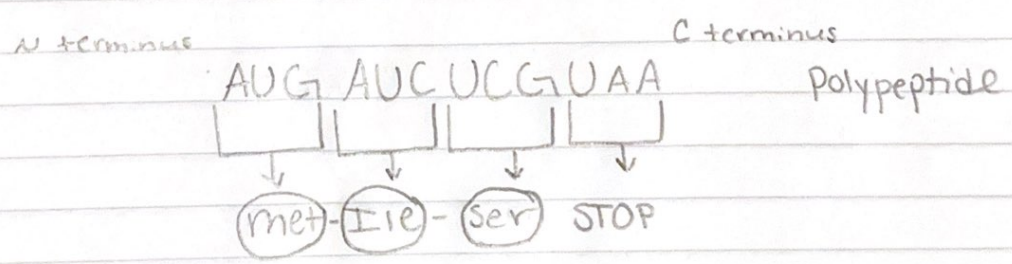 N terminus C terminus
AUG AUC UCG UAA Polypeptide
met - Ile - Ser STOP